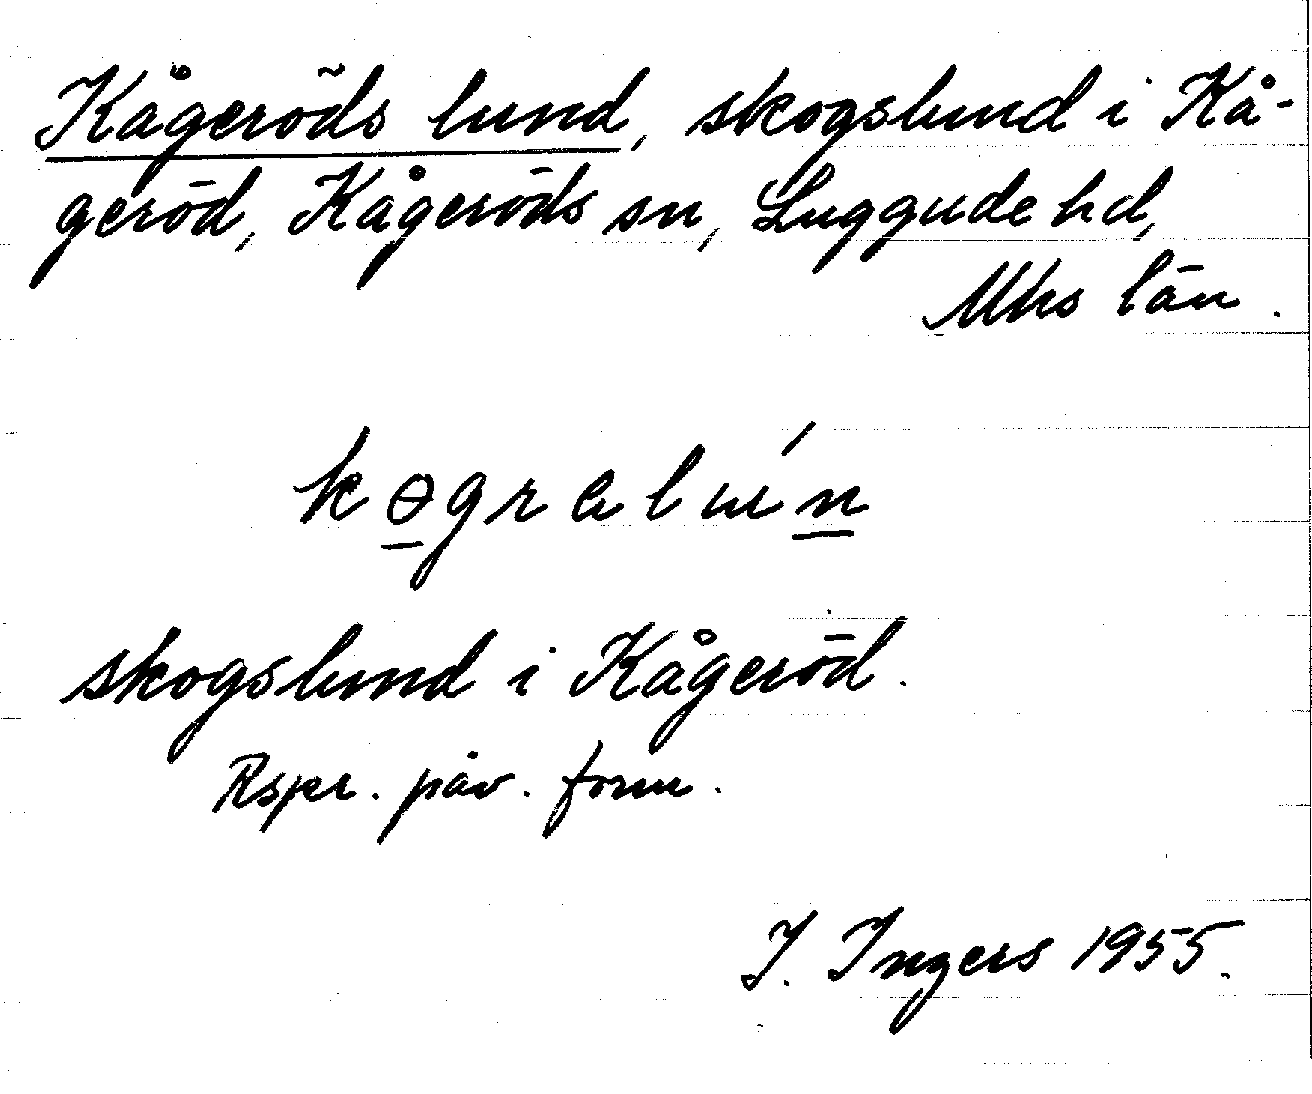 Kågeröds lund, skogslund i Kå-
geröd, Kågeröds sn, Luggude hd,
Mhs län.
kɵgralɯ́n
skogslund i Kågeröd.
Rspr. påv. form.
I. Ingers 1955.